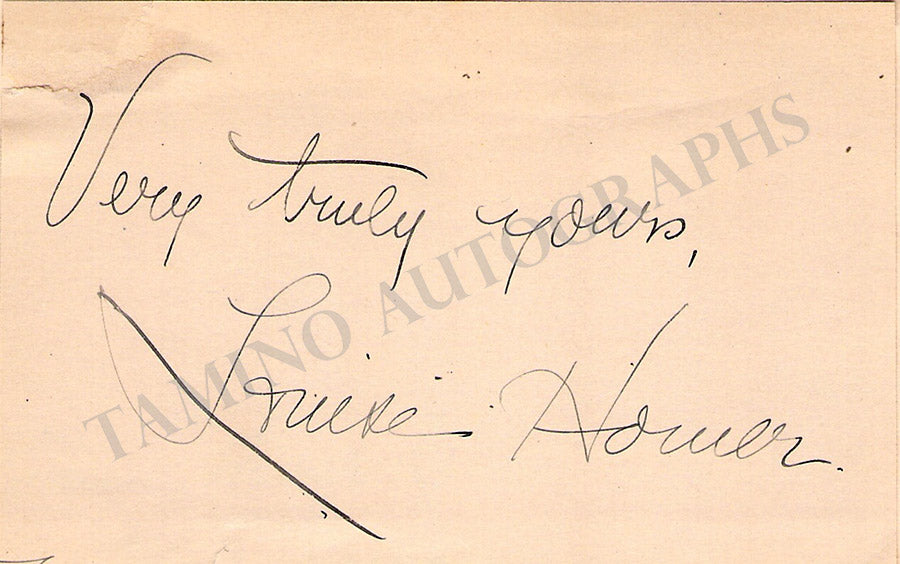 Very truly yours,
Louise Homer.
TAMINO AUTOGRAPHS